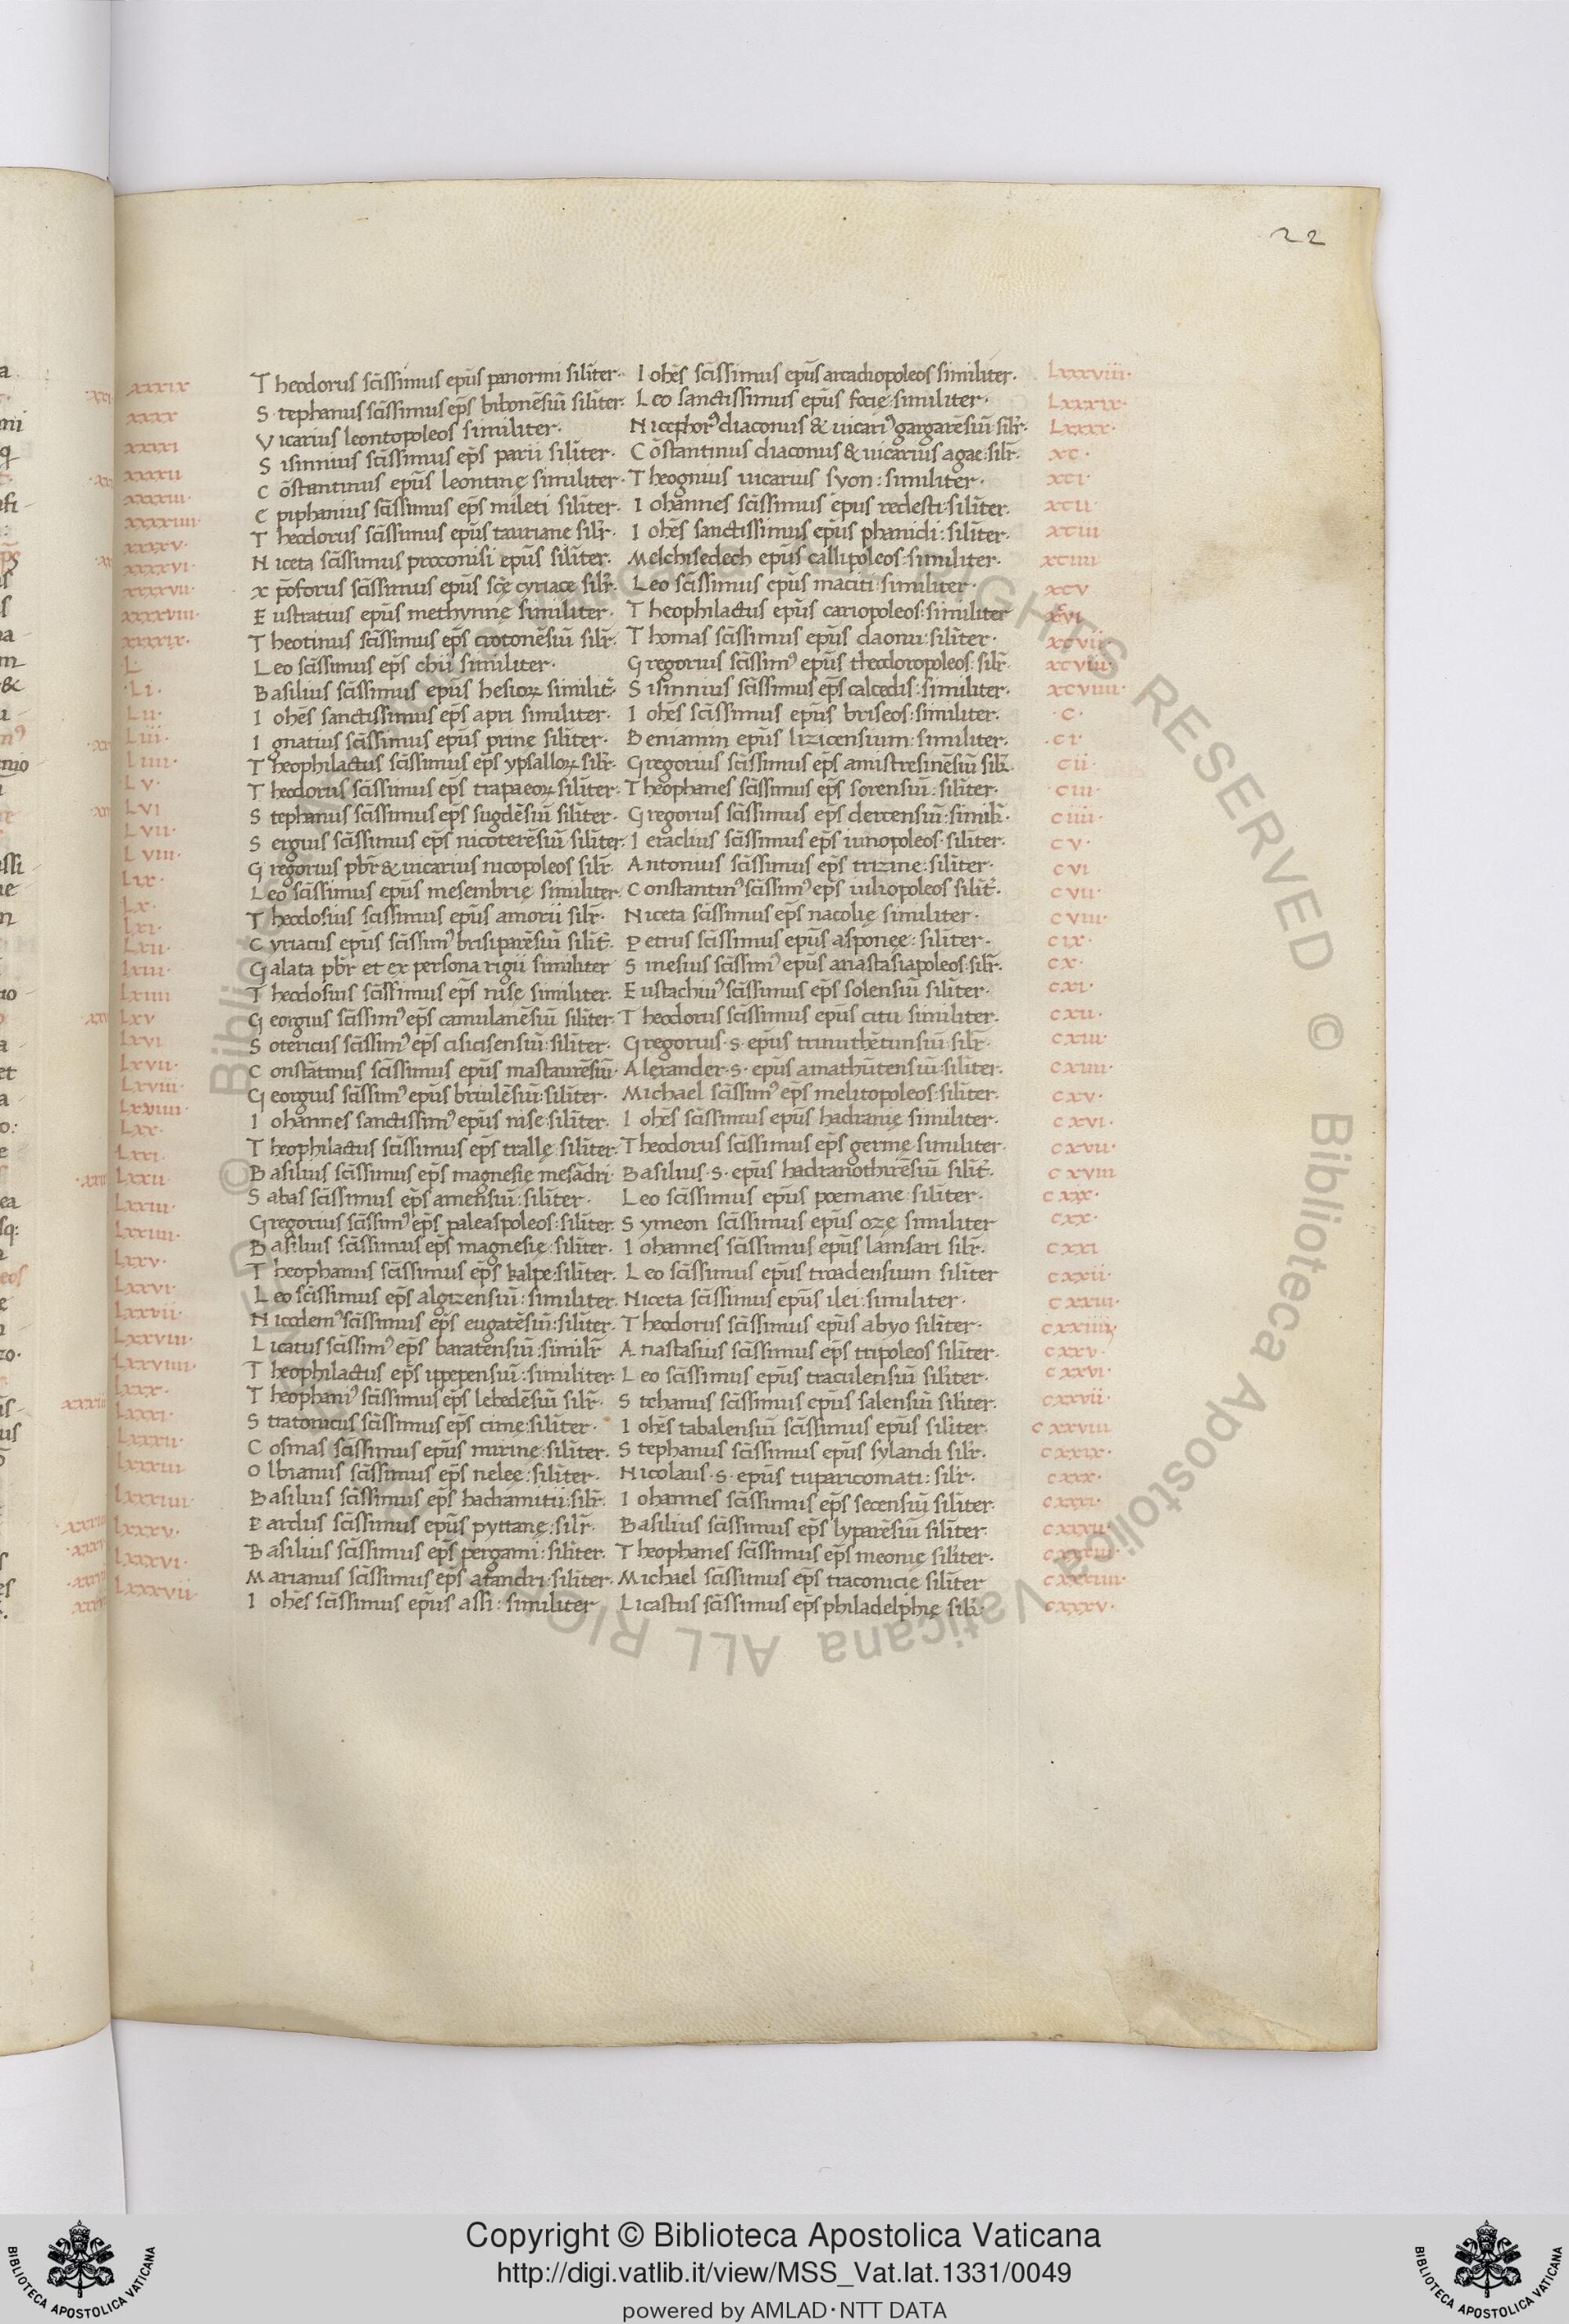 22
xxxix Theodorus sc̄issimus ep̄us panormi silīter·
xxxx S tephanus sc̄issimus ep̄s bitonēsiū silīter·
xxxxi Vicarius leontopoleos similiter·
xxxxii S isinnius sc̄issimus ep̄s parii silīter·
xxxxiii· C ōstantinus ep̄us leontinę similiter·
xxxxiiii· E piphanius sc̄issimus ep̄s mileti silīter·
xxxxv· T heodorus sc̄issimus ep̄us tauriane silr̄·
xxxxvi· N iceta sc̄issimus proconisi ep̄us silīter·
xxxxvii· X p̄oforus sc̄issimus ep̄us sc̄ę cyriacę silr̄·
xxxxviii· E ustratius ep̄us methynnę similiter·
xxxxix· T heotinus sc̄issimus ep̄s crotonēsiū silr̄·
L· L eo sc̄issimus ep̄s chii similiter·
·Li· B asilius sc̄issimus ep̄us hesioꝝ similit̄·
Lii· I oh̄es sanctissimus ep̄s apri similiter·
Liii· I gnatius sc̄issimus ep̄us prine silīter·
Liiii· T heophilactus sc̄issimus ep̄s ypsalloꝝ silr̄·
Lv· T heodorus sc̄issimus ep̄s trapaeoꝝ silīter·
Lvi S tephanus sc̄issimus ep̄s sugdēsiū silīter·
Lvii· S ergius sc̄issimus ep̄s nicoterēsiū silīter·
Lviii· G regorius pb̄r & uicarius nicopoleos silr̄·
Lix· L eo sc̄issimus ep̄us mesembrię similiter·
Lx· T heodosius sc̄issimus ep̄us amorii silr̄·
Lxi· C yriacus ep̄us sc̄issimꝰ brisiparēsiū silit̄·
Lxii· G alata pb̄r et ex persona rigii similiter
Lxiii· T heodosius sc̄issimus ep̄s nisę similiter·
Lxiiii G eorgius sc̄issimꝰ ep̄s camulanēsiū silīter·
Lxv S otericus sc̄issimꝰ ep̄s cisicisensiū: silīter·
Lxvi C onstātinus sc̄issimus ep̄us mastaurēsiū·
Lxvii· G eorgius sc̄issimꝰ ep̄us briulēsiū: silīter·
Lxviii· I ohānnes sanctissimꝰ ep̄us nise: silīter·
Lxviiii· T heophilactus sc̄issimus ep̄s trallę: silīter·
Lxx· B asilius sc̄issimus ep̄s magnesię mesādri·
Lxxi· S abas sc̄issimus ep̄s amensiū: silīter·
Lxxii· G regorius sc̄issimꝰ ep̄s paleaspoleos: silīter·
Lxxiii· B asilius sc̄issimus ep̄s magnesię: silīter·
Lxxiiii· T heophanius sc̄issimus ep̄s kalpe: silīter·
Lxxv· L eo sc̄issimus ep̄s algizensiū: similiter·
Lxxvi· N icodemꝰ sc̄issimus ep̄s eugatēsiū: silīter·
Lxxvii· L icatus sc̄issimꝰ ep̄s baratensiū: similr̄
Lxxviii· T heophilactus ep̄s ippepensiū: similiter·
Lxxviiii· T heophaniꝰ sc̄issimus ep̄s lebedēsiū silr̄·
Lxxx· S tratonicus sc̄issimus ep̄s cimę: silīter·
Lxxxi· C osmas sc̄issimus ep̄us mirine: silīter·
Lxxxii· O lbianus sc̄issimus ep̄s nelee: silīter·
Lxxxiii B asilius sc̄issimus ep̄s hadramitii: silr̄·
Lxxxiiii· P ardus sc̄issimus ep̄us pyttanę: silr̄·
Lxxxv· B asilius sc̄issimus ep̄s pergami: silīter·
Lxxxvi· M arianus sc̄issimus ep̄s atandri: silīter·
Lxxxvii· I oh̄es sc̄issimus ep̄us assi: similiter
I oh̄es sc̄issimus ep̄us arcadiopoleos similiter· Lxxxviii·
L eo sanctissimus ep̄us focię similiter· Lxxxix·
N icephorꝰ diaconus & uicariꝰ gargarēsiū silr̄· Lxxxx·
C ōstantinus diaconus & uicarius agae: silr̄· xc·
T heognius uicarius syon: similiter· xci·
I ohānnes sc̄issimus ep̄us redesti: silīter· xcii
I oh̄es sanctissimus ep̄us phanidi: silīter· xciii
M elchisedech ep̄us callipoleos: similiter· xciiii
L eo sc̄issimus ep̄us maciti: similiter· xcv
T heophilactus ep̄us cariopoleos: similiter xcvi
T homas sc̄issimus ep̄us daonii: silīter· xcvii·
G regorius sc̄issimꝰ ep̄us theodoropoleos: silr̄· xcviii·
S isinnius sc̄issimus ep̄s calcedis: similiter· xcviiii·
I oh̄es sc̄issimus ep̄us briseos: similiter· ·c·
B eniamin ep̄us lizicensium: similiter· ·ci·
G regorius sc̄issimus ep̄s amistresinēsiū silr̄· cii·
T heophanes sc̄issimus ep̄s sorensiū: silīter· ciii·
G regorius sc̄issimus ep̄s dercensiū: simil̄i· ciiii·
I eraclius sc̄issimus ep̄s iunopoleos· silīter· cv·
A ntonius sc̄issimus ep̄s trizine: silīter· cvi
C onstantinꝰ sc̄issimꝰ ep̄s iuliopoleos silit̄· cvii·
N iceta sc̄issimus ep̄s nacolię similiter· cviii·
P etrus sc̄issimus ep̄us asponęe: silīter· cix·
S inesius sc̄issimꝰ ep̄us anastasiapoleos: silr̄· cx·
E ustachiuꝰ sc̄issimus ep̄s solensiū silīter· cxi·
T heodorus sc̄issimus ep̄us citii similiter· cxii·
G regorius· s· ep̄us trinuthētunsiū: silr̄· cxiii·
A lexander· s· ep̄us amathūtensiū: silīter· cxiiii·
M ichael sc̄issimꝰ ep̄s melitopoleos: silīter· cxv·
I oh̄es sc̄issimus ep̄us hadranię similiter· cxvi·
T heodorus sc̄issimus ep̄s germę similiter· cxvii·
B asilius· s· ep̄us hadranothirēsiū silit̄· cxviii
L eo sc̄issimus ep̄us poemane silīter· cxix·
S ymeon sc̄issimus ep̄us ozę similiter cxx·
I ohannes sc̄issimus ep̄us lamsari silr̄· cxxi
L eo sc̄issimus ep̄us troadensium silīter cxxii·
N iceta sc̄issimus ep̄us ilei: similiter· cxxiii·
T heodorus sc̄issimus ep̄us abyo silīter· cxxiiii·
A nastasius sc̄issimus ep̄s tripoleos silīter· cxxv·
L eo sc̄issimus ep̄us traculensiū silīter· cxxvi·
S tehanus sc̄issimus ep̄us salensiū silīter· cxxvii·
I oh̄es tabalensiū sc̄issimus ep̄us silīter· cxxviii
S tephanus sc̄issimus ep̄us sylandi silr̄· cxxix·
N icolaus· s· ep̄us tuparicomati: silr̄· cxxx·
I ohannes sc̄issimus ep̄s secensiū silīter· cxxxi·
B asilius sc̄issimus ep̄s lyparēsiū silīter· cxxxii·
T heophanes sc̄issimus ep̄s meonię silīter· cxxxiii·
M ichael sc̄issimus ep̄s traconicię silīter cxxxiiii·
L icastus sc̄issimus ep̄s philadelphię silr̄· cxxxv·
Copyright © Biblioteca Apostolica Vaticana
http://digi.vatlib.it/view/MSS_Vat.lat.1331/0049
powered by AMLAD·NTT DATA